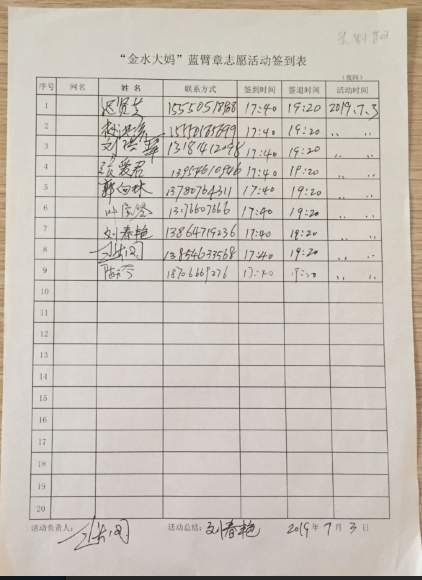 “金水大妈”蓝臂章志愿活动签到表
序号 网名 姓名 联系方式 签到时间 签退时间 活动时间
1 17:40 19:20 2019.7.3
2 17:40 19:20 〃 〃
3 17:40 19:20 〃 〃
4 张爱君 17:40 19:20 〃 〃
5 郭向珠 13780764311 17:40 19:20 〃 〃
6 13176607666 17:40 19:20 〃 〃
7 刘春艳 13864719236 17:40 19:20 〃 〃
8 13854633568 17:40 19:20 〃 〃
9 18706669276 17:40 19:20 〃 〃
10
11
12
13
14
15
16
17
18
19
20
活动负责人: 活动总结: 刘春艳 2019年7月3日